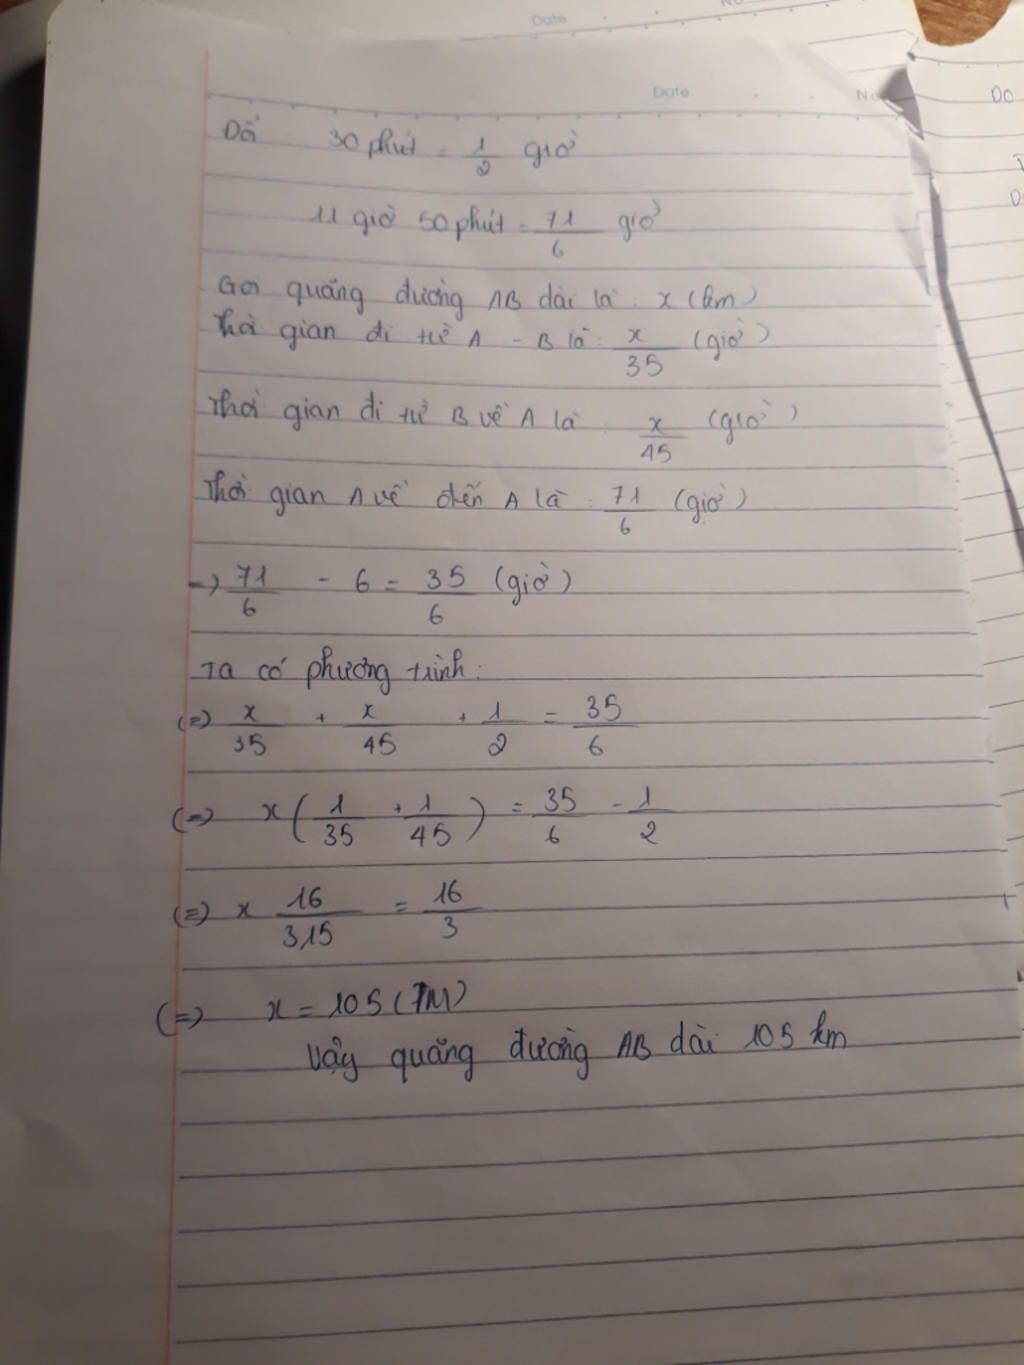 Date
No
Date
No
DO
Đổi 30 phút = 1/2 giờ
11 giờ 50 phút = 71/6 giờ
Gọi quãng đường AB dài là : x (km)
Thời gian đi từ A - B là : x/35 (giờ)
Thời gian đi từ B về A là : x/45 (giờ)
Thời gian A về đến A là : 71/6 (giờ)
=> 71/6 - 6 = 35/6 (giờ)
Ta có phương trình :
(=) x/35 + x/45 + 1/2 = 35/6
(=) x(1/35 + 1/45) = 35/6 - 1/2
(=) x 16/315 = 16/3
(=) x = 105 (TM)
Vậy quãng đường AB dài 105 km